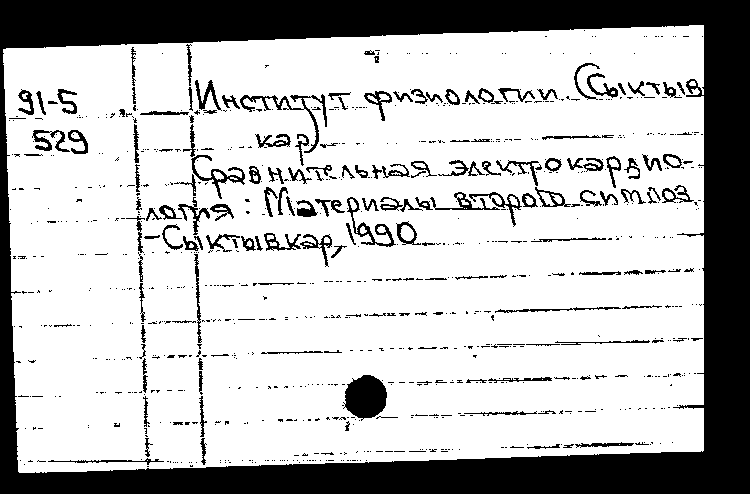 91-5
529
Институт физиологии (Сыктыв
кар).
Сравнительная электрокардио-
логия: Материалы второго симпоз.
-Сыктывкар, 1990